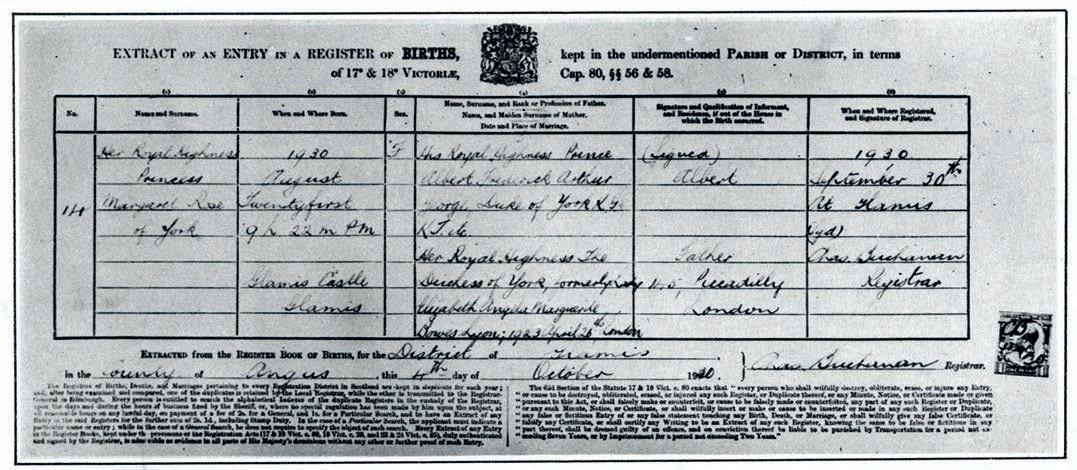 EXTRACT OF AN ENTRY IN A REGISTER OF BIRTHS, kept in the undermentioned PARISH OR DISTRICT, in terms
of 17° & 18° VICTORIÆ, Cap. 80, §§ 56 & 58.
(1) (2) (3) (4) (5) (6)
No. Name and Surname. When and Where Born. Sex. Name, Surname, and Rank or Profession of Father. Signature and Qualification of Informant, When and Where Registered,
Name, and Maiden Surname of Mother. and Residence, if out of the House in and Signature of Registrar.
Date and Place of Marriage. which the Birth occurred.
Her Royal Highness 1930 F His Royal Highness Prince (Signed) 1930
Princess August Albert Frederick Arthur Albert September 30th
114 Margaret Rose Twentyfirst George, Duke of York K.G. At Glamis
of York 9 h 22 m P M K.T. &c
Her Royal Highness The Father Chas. Buchanan
Glamis Castle Duchess of York, formerly Lady 145, Piccadilly Registrar
Glamis Elizabeth Angela Marguerite London
Bowes Lyon; 1923 April 26th London
EXTRACTED from the REGISTER BOOK OF BIRTHS, for the District of Glamis
in the County of Angus this 4th day of October 1930 Chas. Buchanan Registrar.
The Registers of Births, Deaths, and Marriages pertaining to every Registration District in Scotland are kept in duplicate for each year;
and, after being examined and compared, one of the duplicates is retained by the Local Registrar, while the other is transmitted to the Registrar-
General in Edinburgh. Every person is entitled to search the duplicate Registers in the custody of the Registrar,
upon the days and during the hours of business fixed by the Sheriff, or, where no special regulation has been made by him upon the subject, at
Entry in the said Registers for the further sum of 2s. 1d., including Stamp Duty. In the case of a Particular Search, the applicant must indicate a
particular name or entry; while in the case of a General Search, he does not require to specify the object of such search. Every Extract of any Entry
and signed by the Registrar, is admissible as evidence in all parts of His Majesty's dominions without any other or further proof of such Entry.
The 62d Section of the Statute 17 & 18 Vict. c. 80 enacts that "every person who shall wilfully destroy, obliterate, erase, or injure any Entry,
or cause to be destroyed, obliterated, erased, or injured any such Register, or Duplicate thereof, or any Minute, Notice, or Certificate made or given
pursuant to this Act, or shall falsely make or counterfeit, or cause to be falsely made or counterfeited, any part of any such Register or Duplicate,
or any such Minute, Notice, or Certificate, or shall wilfully insert or make or cause to be inserted or made in any such Register or Duplicate
any false or fictitious Entry of or any false statement touching any Birth, Death, or Marriage, or shall wilfully give any false Certificate,
falsify any Certificate, or shall certify any Writing to be an Extract of any such Register, knowing the same to be false or fictitious in any
part thereof, shall be deemed guilty of an offence, and on conviction thereof be liable to be punished by Transportation for a period not ex-
ceeding Seven Years, or by Imprisonment for a period not exceeding Two Years."